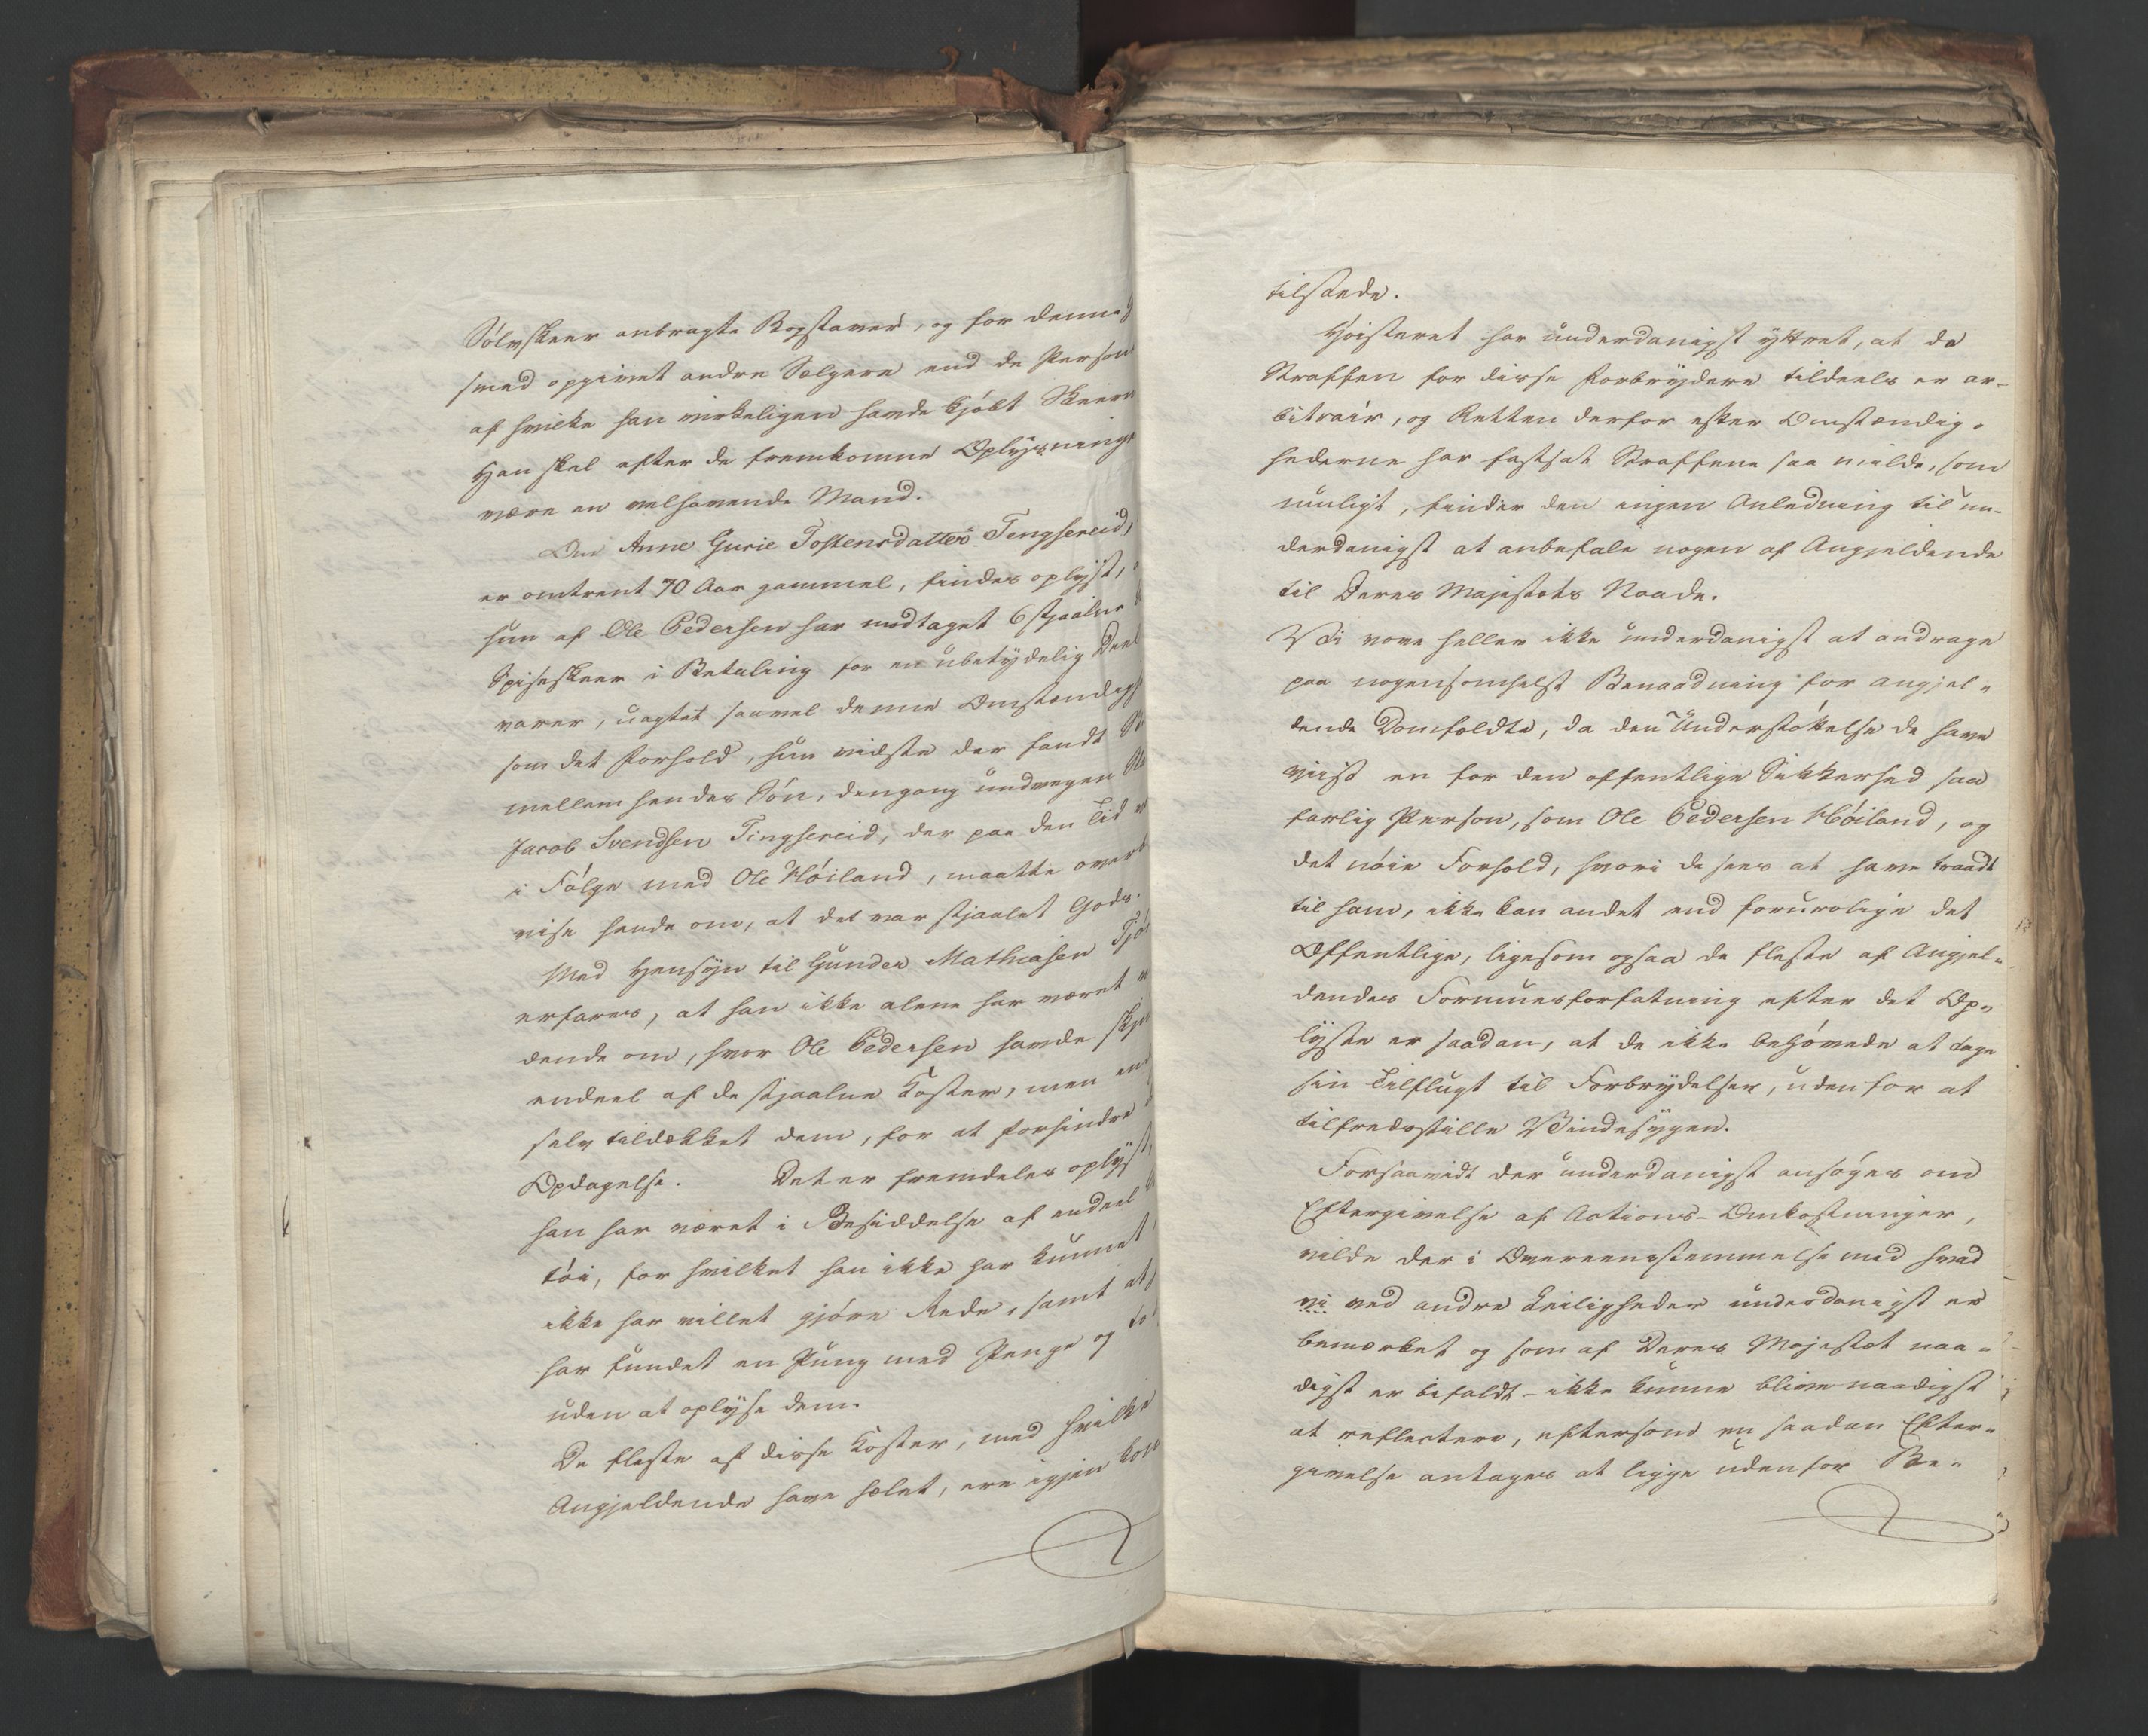 Sölvskeer anbragte Bogstaver, og for denne
smed opgivet andre Sælgere end de Person
af hvilke han virkeligen havde kjöbt Skeern
Han skal efter de fremkomne Oplysninge
være en velhavende Mand.
Om Anne Gurie Tostensdatter Tengsereid,
er omtrent 70 Aar gammel, findes oplyst,
hun af Ole Pedersen har modtaget 6 stjaalne
Spiseskeer i Betaling for en ubetydelig Deel
varer, uagtet saavel denne Omstændigh
som det Forhold, hun vidste der fandt St
mellem hendes Sön, dengang undvegen Sl
Jacob Svendsen Tingsereid, der paa den Tid
i Fölge med Ole Höiland, maatte overb
vise hende om, at det var stjaalet Gods.
Med Hensyn til Gunder Mathiasen Tjö
erfares, at han ikke alene har været
dende om, hvor Ole Pedersen havde skju
endeel af de stjaalne Koster, men en
selv tildækket dem, for at forhindre
Opdagelse. Det er fremdeles oplyst,
han har været i Besiddelse af endeel
töi, for hvilket han ikke har kunnet
ikke har villet gjöre Rede, samt at
har fundet en Pung med Penge og to
uden at oplyse dem.
De fleste af disse Koster, med hvilke
Angjeldende have hælet, ere igjen kom
tilstede.
Höisteret har underdanigst yttret, at da
Straffen for disse Forbrydere tildeels er ar-
bitrair, og Retten derfor efter Omstændig-
hederne har fastsat Straffene saa milde, som
muligt, finder den ingen Anledning til un-
derdanigst at anbefale nogen af Angjeldende
til Deres Majestæts Naade.
Vi vove heller ikke underdanigst at andrage
paa nogensomhelst Benaadning for angjel-
dende Domfældte, da den Understöttelse de have
viist en for den offentlige Sikkerhed saa
farlig Person, som Ole Pedersen Höiland, og
det nöie Forhold, hvori de sees at have traadt
til ham, ikke kan andet end forurolige det
Offentlige, ligesom ogsaa de fleste af Angjel-
dendes Formuesforfatning efter det Op-
lyste er saadan, at de ikke behövede at tage
sin Tilflugt til Forbrydelser, uden for at
tilfredsstille Vindesygen.
Forsaavidt der underdanigst ansöges om
Eftergivelse af Actions-Omkostninger,
vilde der i Overeensstemmelse med hvad
vi ved andre Leiligheder underdanigst er
bemærket og som af Deres Majestæt naa-
digst er bifaldt - ikke kunne blive naadigst
at reflectere, eftersom en saadan Efter-
givelse antages at ligge udenfor Be-